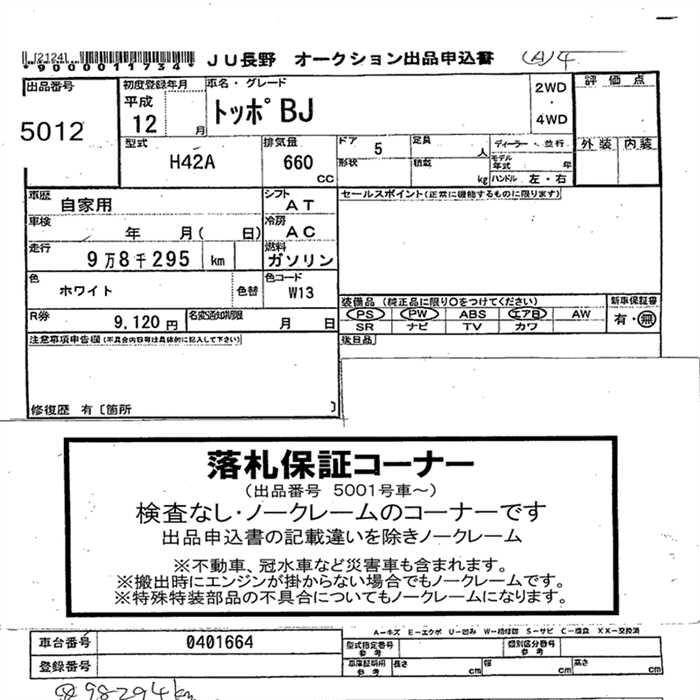 [2124]
*9000011734*
JU長野 オークション出品申込書
出品番号
5012
初度登録年月
平成
12 月
車名・グレード
トッポBJ
2WD
・
4WD
評価点
外装 内装
型式
H42A
排気量
660
cc
ドア 5
形状
定員
人
積載
kg
ディーラー・並行
モデル年式 年
ハンドル 左・右
車歴
自家用
シフト
AT
車検
年 月( 日)
冷房
AC
走行
9万8千295 km
燃料
ガソリン
色
ホワイト
色替
色コード
W13
R券
9,120 円
名変通知期限
月 日
セールスポイント(正常に機能するものに限ります)
装備品 (純正品に限り○をつけてください)
PS PW ABS エアB AW
SR ナビ TV カワ
新車保証書
有・無
後日品
注意事項申告欄(不具合内容等は具体的に記入して下さい)
修復歴 有〔箇所 〕
落札保証コーナー
(出品番号 5001号車~)
検査なし・ノークレームのコーナーです
出品申込書の記載違いを除きノークレーム
※不動車、冠水車など災害車も含まれます。
※搬出時にエンジンが掛からない場合でもノークレームです。
※特殊特装部品の不具合についてもノークレームになります。
A-キズ E-エクボ U-凹み W-補修跡 S-サビ C-腐食 XX-交換済
車台番号 0401664
登録番号
型式指定番号
参考
類別区分番号
参考
車庫証明用
参考
長さ cm
幅 cm
高さ cm
98294km